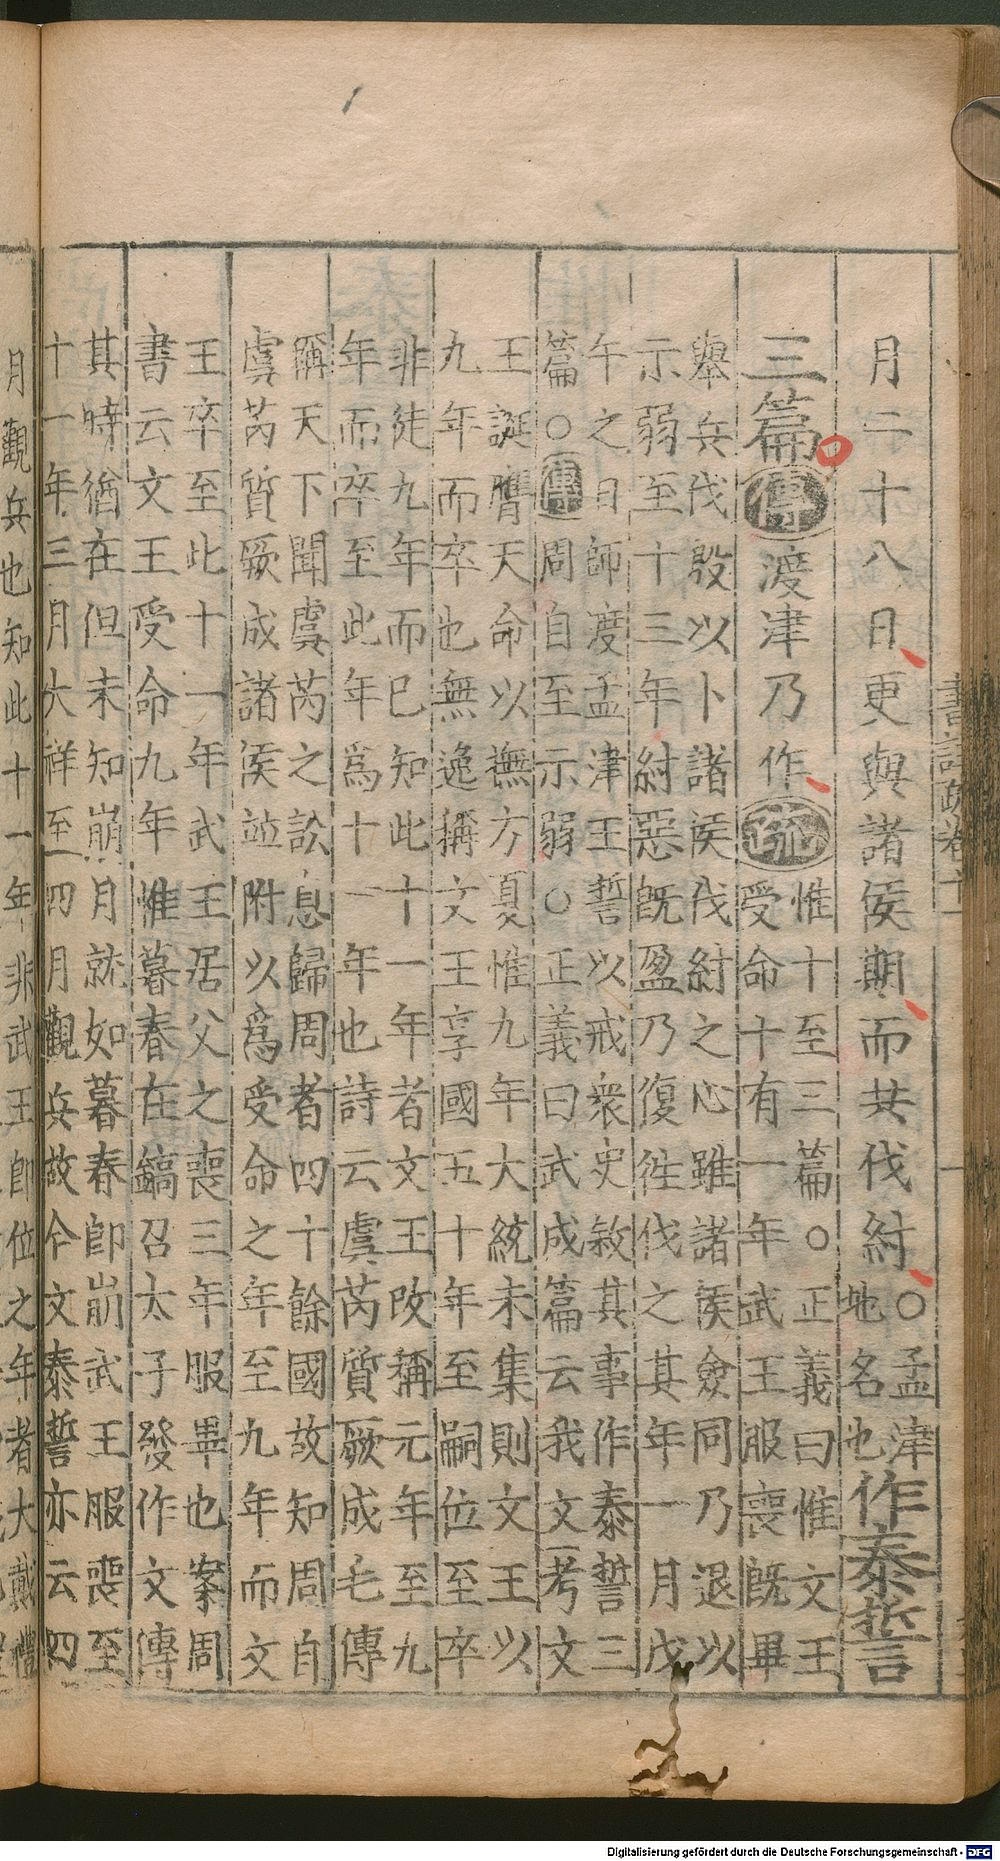 書註疏卷十一
月二十八日更與諸侯期而共伐紂○孟津
地名也作泰誓
三篇傳渡津乃作疏惟十至三篇○正義曰惟文王
受命十有一年武王服喪既畢
舉兵伐殷以卜諸侯伐紂之心雖諸侯僉同乃退以
示弱至十三年紂惡旣盈乃復徃伐之其年一月戊
午之日師渡孟津王誓以戒衆史敘其事作泰誓三
篇○傳周自至示弱○正義曰武成篇云我文考文
王誕膺天命以撫方夏惟九年大統未集則文王以
九年而卒也無逸稱文王享國五十年至嗣位至卒
非徒九年而已知此十一年者文王改稱元年至九
年而卒至此年爲十一年也詩云虞芮質厥成毛傳
稱天下聞虞芮之訟息歸周者四十餘國故知周自
虞芮質厥成諸侯並附以爲受命之年至九年而文
王卒至此十一年武王居父之喪三年服畢也案周
書云文王受命九年惟暮春在鎬召太子發作文傳
其時猶在但未知崩月就如暮春卽崩武王服喪至
十一年三月大祥至四月觀兵故今文泰誓亦云四
月觀兵也知此十一年非武王卽位之年者大戴禮
Digitalisierung gefördert durch die Deutsche Forschungsgemeinschaft - DFG